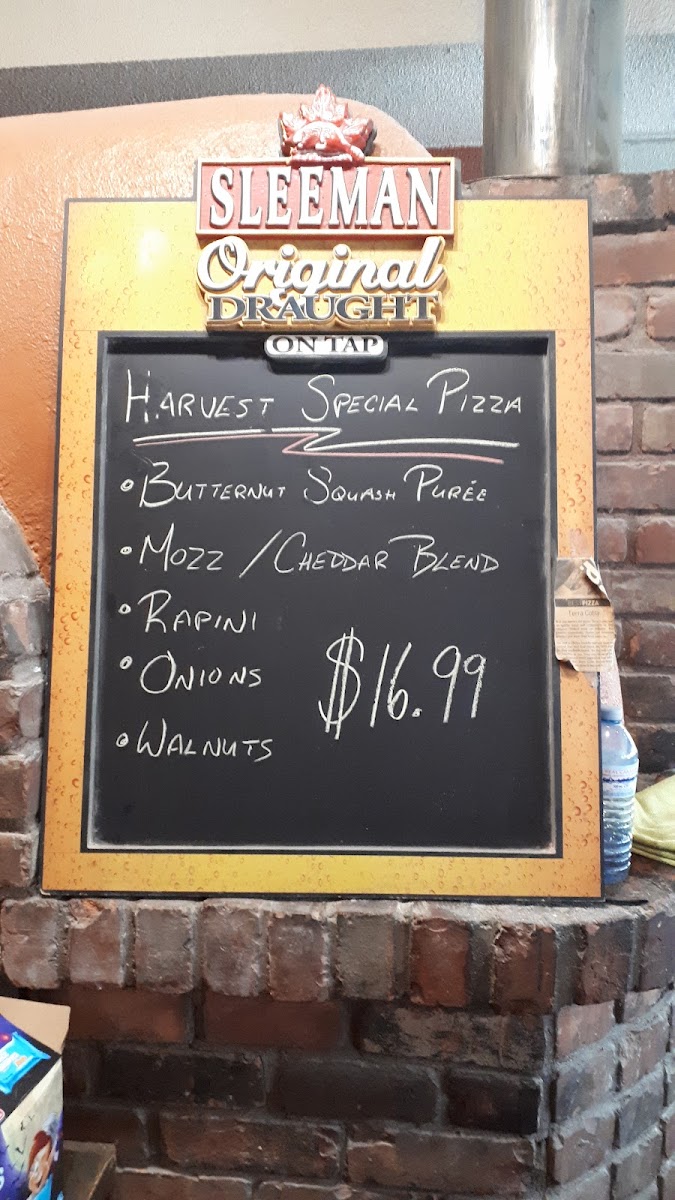 SLEEMAN
Original
DRAUGHT
ON TAP
HARVEST SPECIAL PIZZA
• BUTTERNUT SQUASH PURÉE
• MOZZ / CHEDDAR BLEND
• RAPINI
• ONIONS
• WALNUTS
$16.99
PIZZA